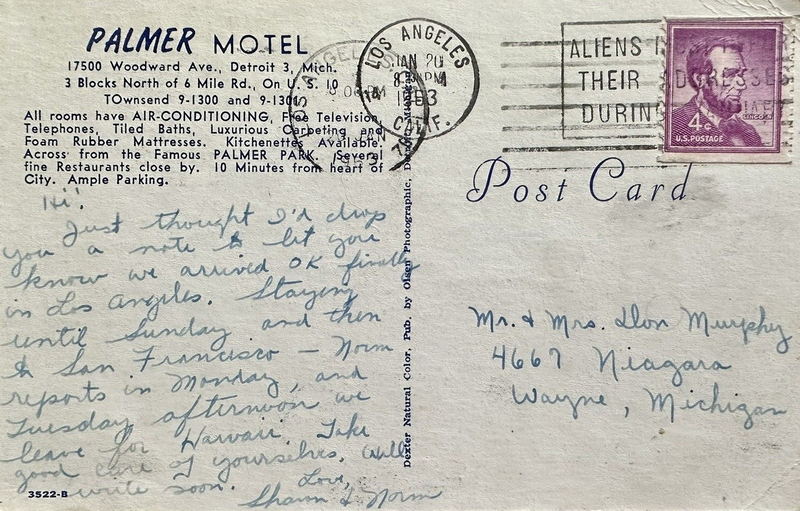 PALMER MOTEL
17500 Woodward Ave., Detroit 3, Mich.
3 Blocks North of 6 Mile Rd., On U. S. 10
TOwnsend 9-1300 and 9-1301
All rooms have AIR-CONDITIONING, Free Television,
Telephones, Tiled Baths, Luxurious Carpeting and
Foam Rubber Mattresses. Kitchenettes Available.
Across from the Famous PALMER PARK. Several
fine Restaurants close by. 10 Minutes from heart of
City. Ample Parking.
Hi!
Just thought I'd drop
you a note to let you
know we arrived OK finally
in Los Angeles. Staying
until Sunday and then
to San Francisco – Norm
reports in Monday, and
Tuesday afternoon we
leave for Hawaii. Take
good care of yourselves. Will
write soon.
Love,
Sharon & Norm
3522-B
Dexter Natural Color, Pub. by Olsen Photographic,
LOS ANGELES
JAN 20
PM
CALIF.
ALIENS
THEIR ADDRESSES
DURING
4¢
U.S. POSTAGE
LINCOLN
Post Card
Mr. & Mrs. Don Murphy
4667 Niagara
Wayne, Michigan